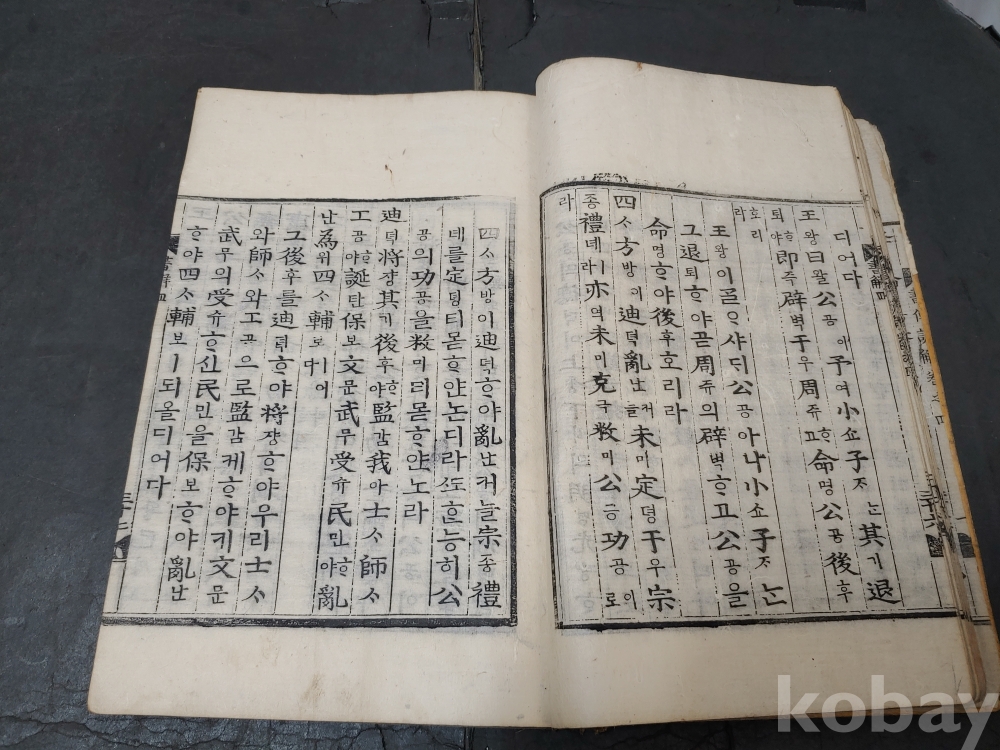 디어다
王왕曰왈公공아予여小쇼子ᄌᆞᄂᆞᆫ其기退
퇴ᄒᆞ야即즉辟벽于우周쥬ᄒᆞ고命명公공後후
호리라
王왕이ᄀᆞᄅᆞ샤ᄃᆡ公공아나小쇼子ᄌᆞᄂᆞᆫ
그退퇴ᄒᆞ야곧周쥬의辟벽ᄒᆞ고公공을
命명ᄒᆞ야後후호리라
四ᄉᆞ方방이迪뎍亂난이어늘未미定뎡于우宗
종禮례라亦역未미克극敉미公공功공이로
라
四ᄉᆞ方방이迪뎍ᄒᆞ야亂난커늘宗종禮
례를定뎡티몯ᄒᆞ얀ᄂᆞᆫ디라ᄯᅩᄒᆞᆫ能히公
공의功공을敉미티몯ᄒᆞ얀노라
迪뎍將쟝其기後후ᄒᆞ야監감我아士ᄉᆞ師ᄉᆞ
工공ᄒᆞ야誕탄保보文문武무受슈民민ᄒᆞ야亂
난為위四ᄉᆞ輔보ㅣ어다
그後후를迪뎍ᄒᆞ야將쟝ᄒᆞ야우리士ᄉᆞ
와師ᄉᆞ와工공으로監감케ᄒᆞ야키文문
武무의受슈ᄒᆞ신民민을保보ᄒᆞ야亂난
ᄒᆞ야四ᄉᆞ輔보ㅣ되올디어다
書解四
三十七
kobay